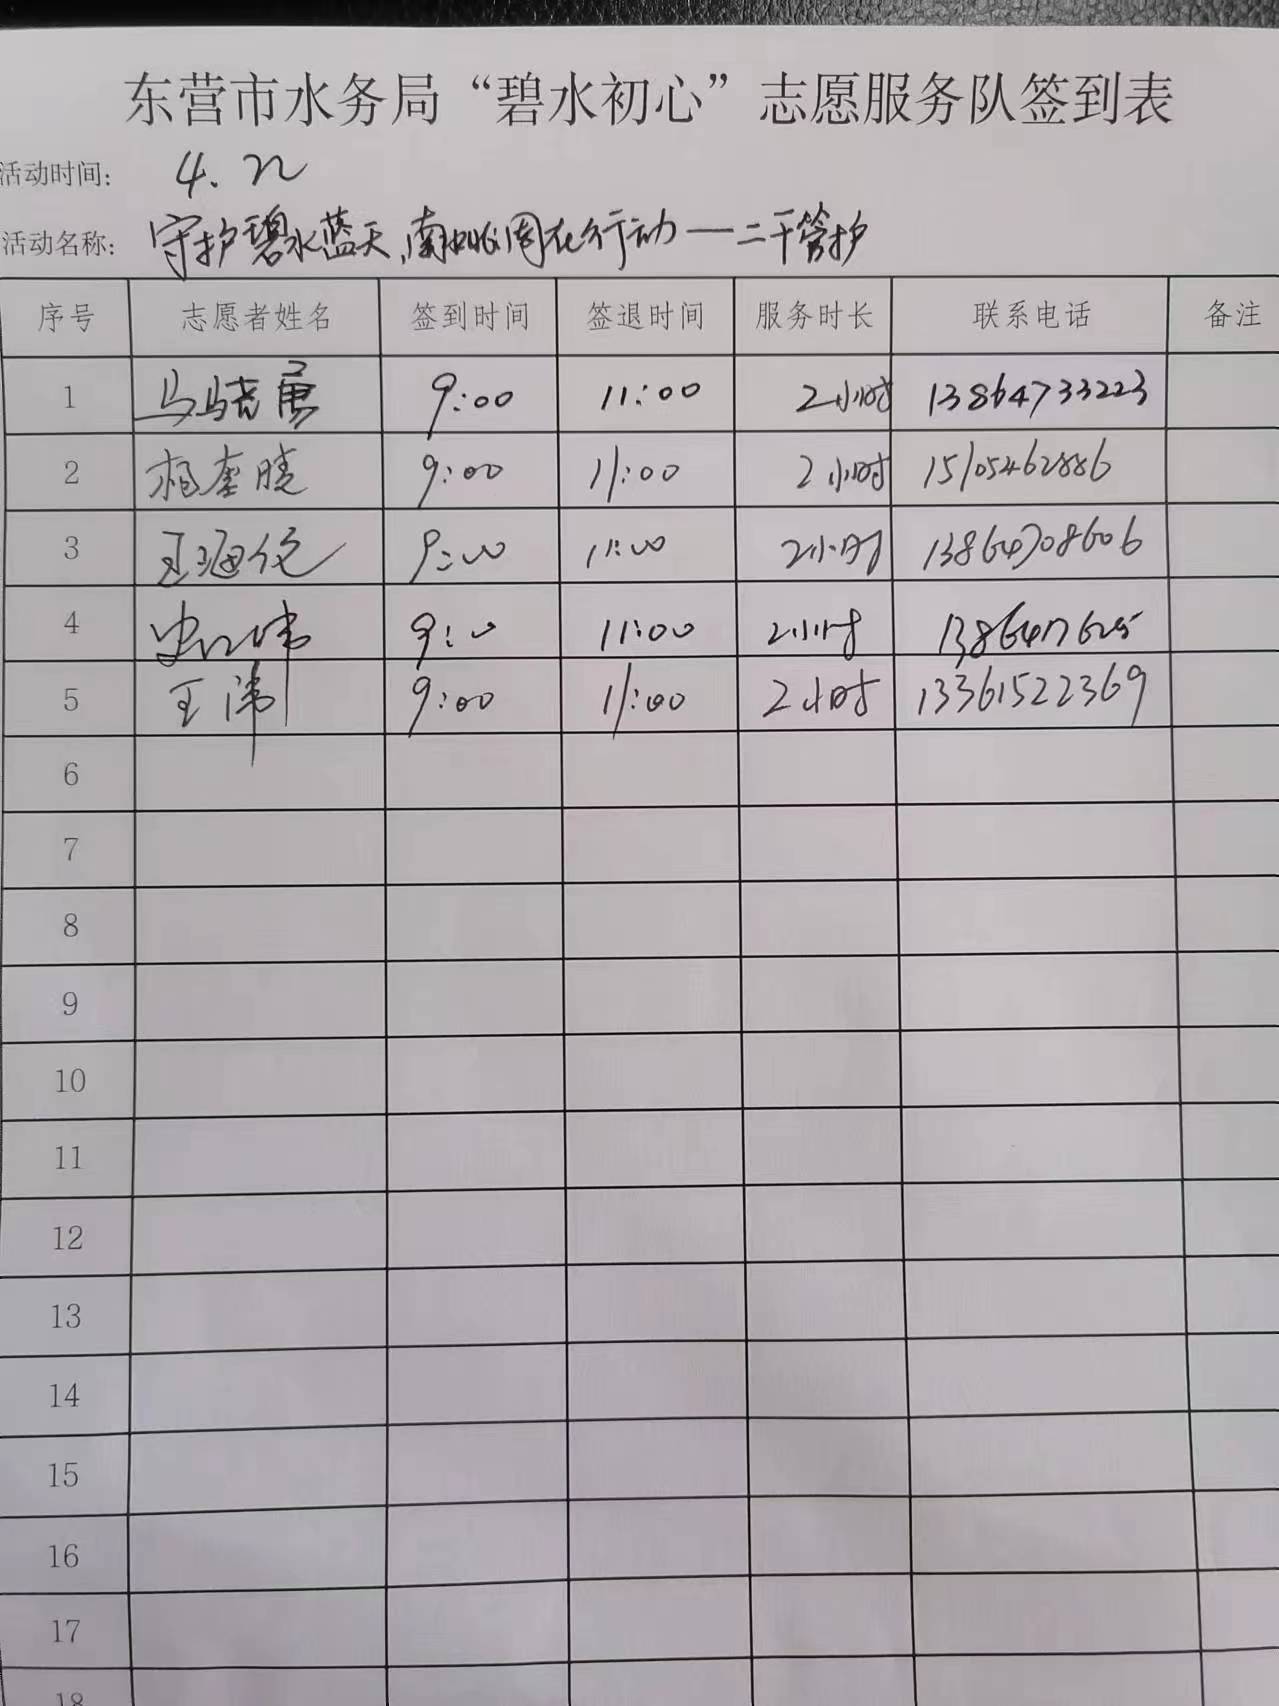 东营市水务局“碧水初心”志愿服务队签到表
活动时间： 4.22
活动名称： 守护碧水蓝天、南郊周在行动—二干管护
序号 志愿者姓名 签到时间 签退时间 服务时长 联系电话 备注
1 马晓勇 9:00 11:00 2小时 13864733223
2 相奎晓 9:00 11:00 2小时 15105462886
3 王海伦 9:00 11:00 2小时 13864708606
4 9:00 11:00 2小时
5 王沛 9:00 11:00 2小时 13361522369
6
7
8
9
10
11
12
13
14
15
16
17
18